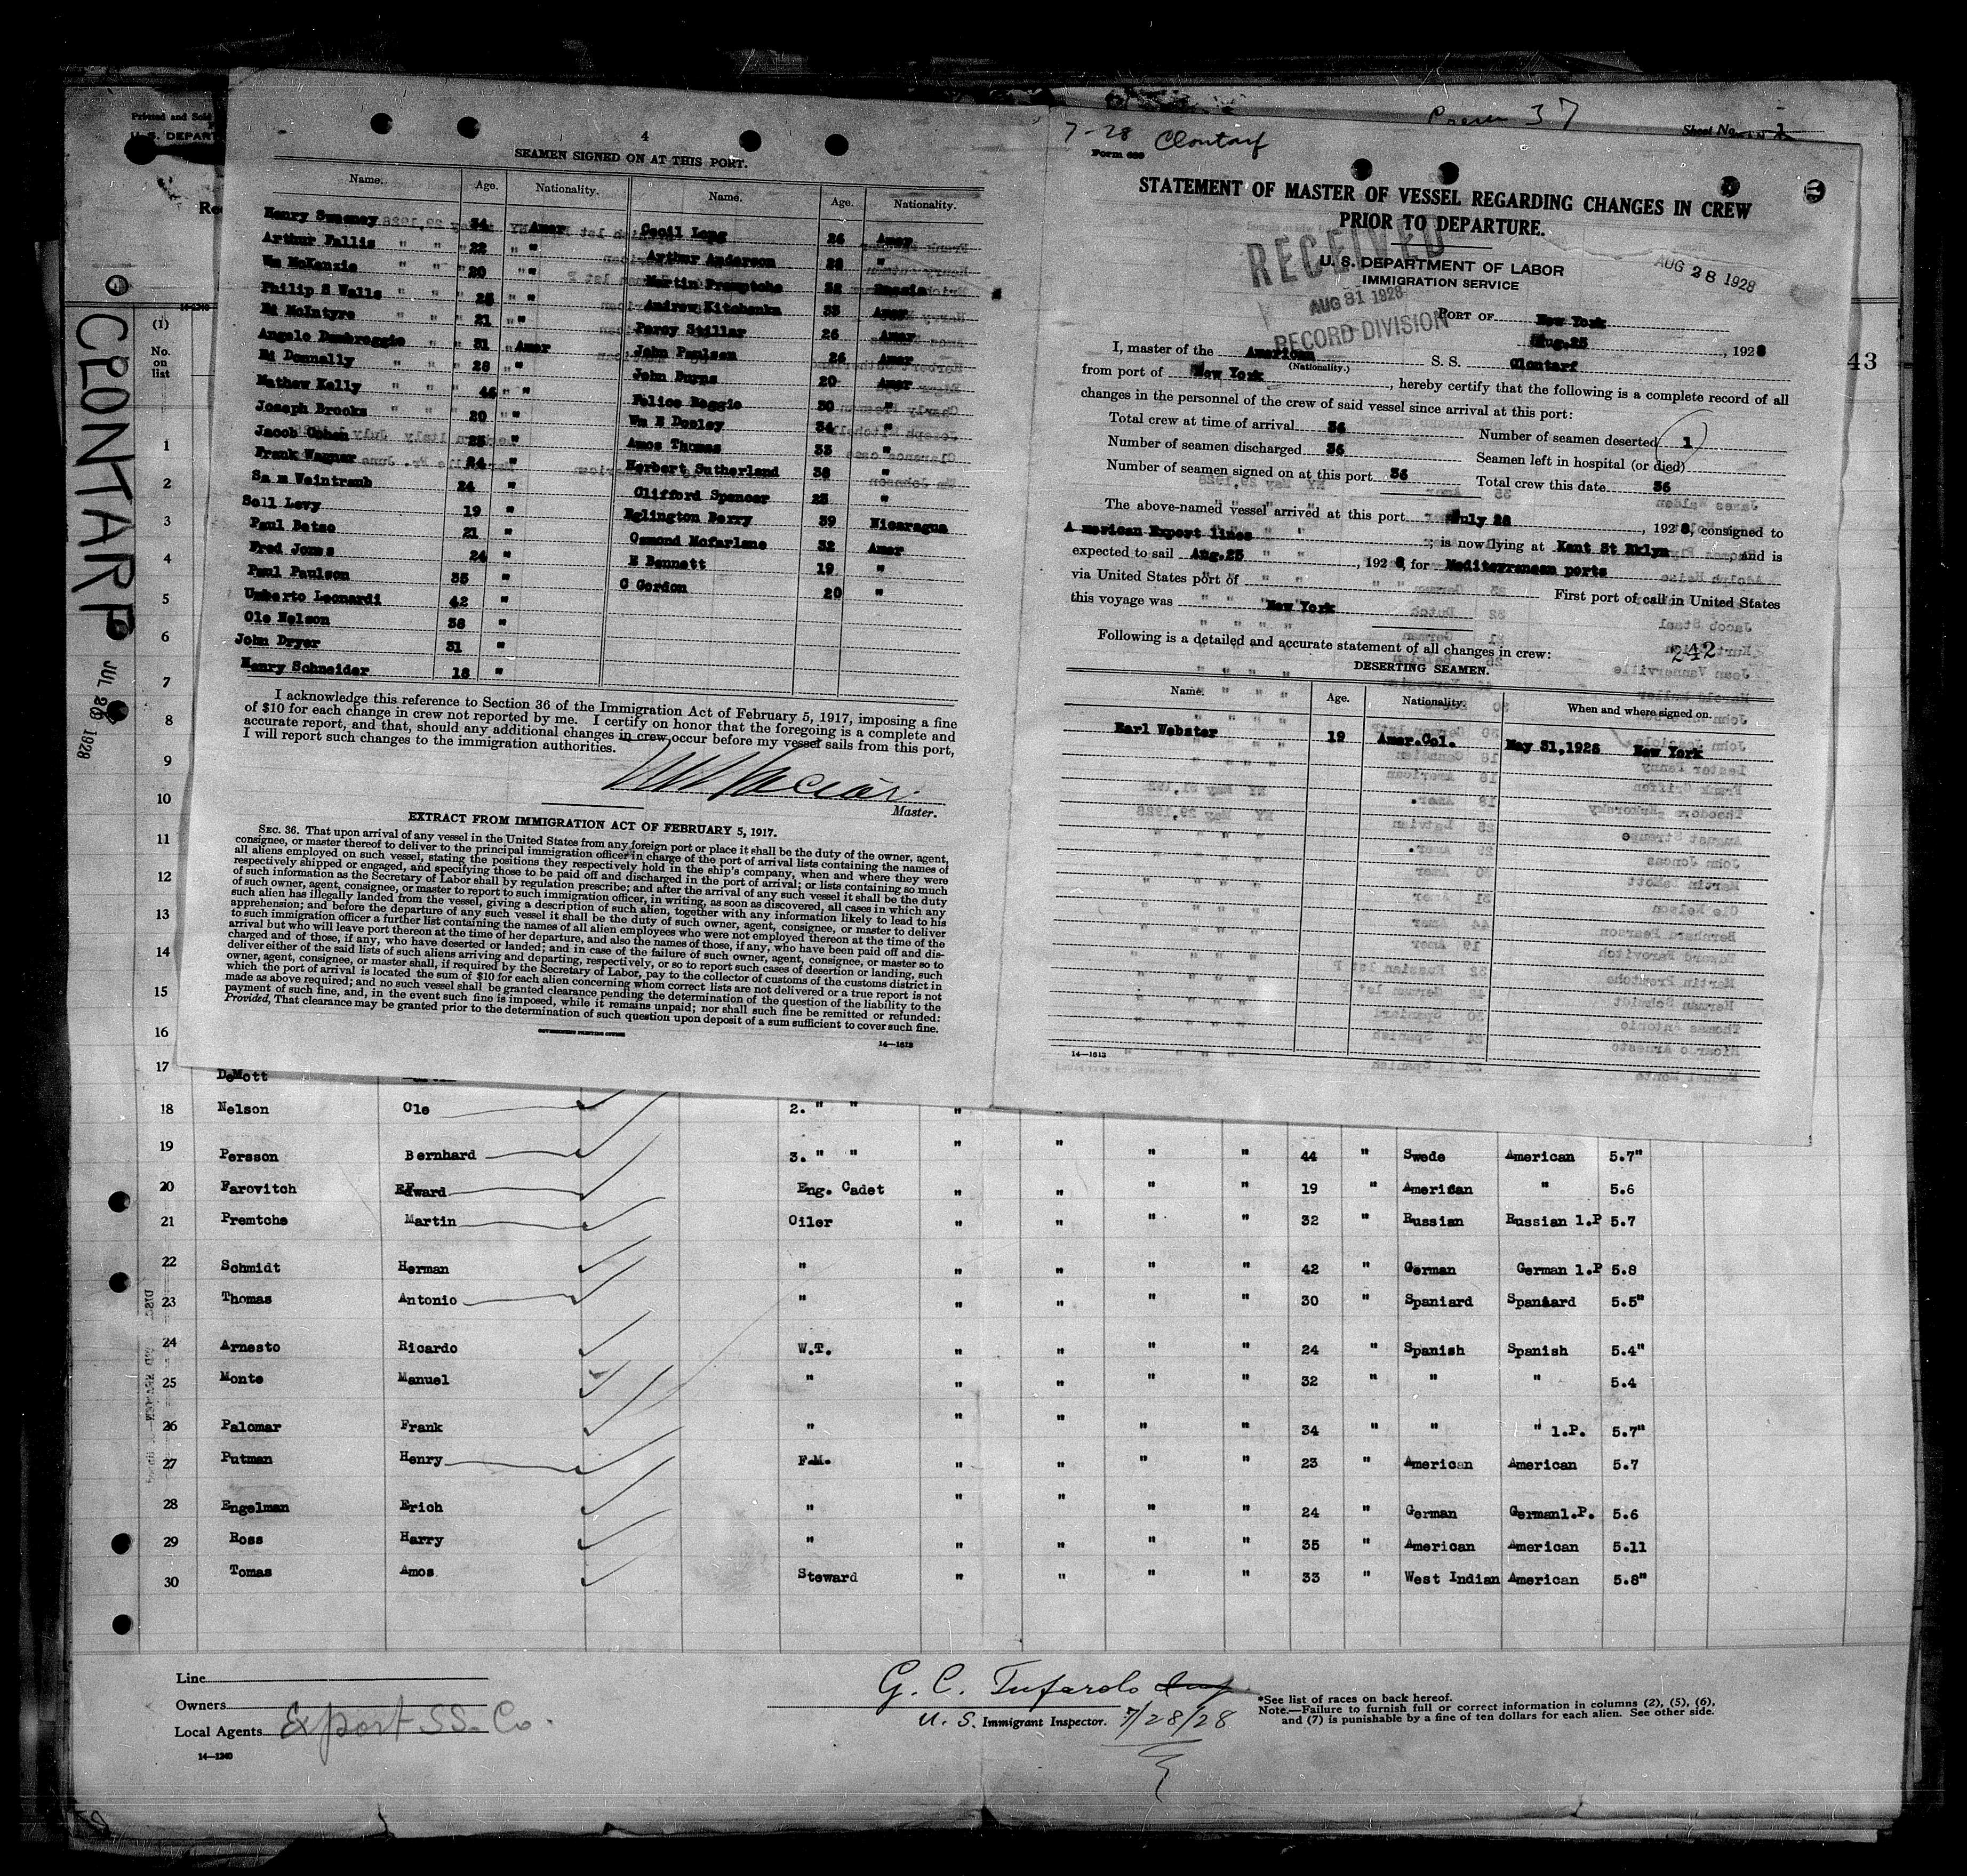 Printed and Sold
U. S. DEPART
CLONTARF
JUL 28 1928
14-1240
(1)
No.
on
list
4
SEAMEN SIGNED ON AT THIS PORT.
Name. Age. Nationality. Name. Age. Nationality.
Henry Sweeney 34 Amer Cecil Long 26 Amer
Arthur Fallis " " " 22 " Arthur Anderson 28 "
Wm McKenzie " " " 20 " Martin Premptche 32 Russia
Philip S Walls " " " 25 " Andrew Kitchenka 33 Amer
Ed McIntyre " " " 21 " Percy Stillar 26 Amer
Angelo Dambroggio " " 31 Amer John Paulsen 26 Amer
Ed Donnally " " " 28 " John Burns 20 Amer
Mathew Kelly " " " 46 " Felice Baggio 30 "
Joseph Brooks " " " 20 " Wm E Dopley 34 "
Jacob Cohen 25 " Amos Thomas 33 "
Frank Wagner 24 " Herbert Sutherland 38 "
Sam Weintraub 24 " Clifford Spencer 23 "
Soll Levy 19 " Eglington Berry 39 Nicaragua
Paul Batso 21 " Osmond Mcfarlane 32 Amer
Fred Jones 24 " E Bennett 19 "
Paul Paulson 35 " C Gordon 20 "
Umberto Leonardi 42 "
Ole Nelson 38 "
John Dryer 31 "
Henry Schneider 18 "
I acknowledge this reference to Section 36 of the Immigration Act of February 5, 1917, imposing a fine
of $10 for each change in crew not reported by me. I certify on honor that the foregoing is a complete and
accurate report, and that, should any additional changes in crew occur before my vessel sails from this port,
I will report such changes to the immigration authorities.
Master.
EXTRACT FROM IMMIGRATION ACT OF FEBRUARY 5, 1917.
SEC. 36. That upon arrival of any vessel in the United States from any foreign port or place it shall be the duty of the owner, agent,
consignee, or master thereof to deliver to the principal immigration officer in charge of the port of arrival lists containing the names of
all aliens employed on such vessel, stating the positions they respectively hold in the ship's company, when and where they were
respectively shipped or engaged, and specifying those to be paid off and discharged in the port of arrival; or lists containing so much
of such information as the Secretary of Labor shall by regulation prescribe; and after the arrival of any such vessel it shall be the duty
of such owner, agent, consignee, or master to report to such immigration officer, in writing, as soon as discovered, all cases in which any
such alien has illegally landed from the vessel, giving a description of such alien, together with any information likely to lead to his
apprehension; and before the departure of any such vessel it shall be the duty of such owner, agent, consignee, or master to deliver
to such immigration officer a further list containing the names of all alien employees who were not employed thereon at the time of the
arrival but who will leave port thereon at the time of her departure, and also the names of those, if any, who have been paid off and dis-
charged and of those, if any, who have deserted or landed; and in case of the failure of such owner, agent, consignee, or master so to
deliver either of the said lists of such aliens arriving and departing, respectively, or so to report such cases of desertion or landing, such
owner, agent, consignee, or master shall, if required by the Secretary of Labor, pay to the collector of customs of the customs district in
which the port of arrival is located the sum of $10 for each alien concerning whom correct lists are not delivered or a true report is not
made as above required; and no such vessel shall be granted clearance pending the determination of the question of the liability to the
payment of such fine, and, in the event such fine is imposed, while it remains unpaid; nor shall such fine be remitted or refunded:
Provided, That clearance may be granted prior to the determination of such question upon deposit of a sum sufficient to cover such fine.
GOVERNMENT PRINTING OFFICE
14—1613
37
Sheet No. 1
7-28 Clontarf
Form 689
STATEMENT OF MASTER OF VESSEL REGARDING CHANGES IN CREW
PRIOR TO DEPARTURE.
RECEIVED
AUG 31 1928
RECORD DIVISION
U. S. DEPARTMENT OF LABOR
IMMIGRATION SERVICE
AUG 28 1928
PORT OF New York
Aug.25, 1928
43
I, master of the American S. S. Clontarf
(Nationality.)
from port of New York, hereby certify that the following is a complete record of all
changes in the personnel of the crew of said vessel since arrival at this port:
Total crew at time of arrival 36 Number of seamen deserted 1
Number of seamen discharged 36 Seamen left in hospital (or died)
Number of seamen signed on at this port 36 Total crew this date 36
The above-named vessel arrived at this port July 28, 1928, consigned to
American Export lines; is now lying at Kent St Bklyn, and is
expected to sail Aug.25, 1928, for Mediterranean ports
via United States port of First port of call in United States
this voyage was New York
Following is a detailed and accurate statement of all changes in crew:
242
DESERTING SEAMEN.
Name. Age. Nationality. When and where signed on.
Earl Webster 19 Amer.Col. May 31,1928 New York
14—1613
1
2
3
4
5
6
7
8
9
10
11
12
13
14
15
16
17 DeMott
18 Nelson Ole 2. " " " "
19 Persson Bernhard 3. " " " " " " 44 " Swede American 5.7"
20 Farovitch Edward Eng. Cadet " " " " 19 " American " 5.6
21 Premtche Martin Oiler " " " " 32 " Russian Russian 1.P 5.7
22 Schmidt Herman " " " " " 42 " German German 1.P 5.8
23 Thomas Antonio " " " " " 30 " Spaniard Spaniard 5.5"
24 Arnesto Ricardo W.T. " " " " 24 " Spanish Spanish 5.4"
25 Monte Manuel " " " " " 32 " " " 5.4
26 Palomar Frank " " " " " 34 " " " 1.P. 5.7"
27 Putman Henry F.M. " " " " 23 " American American 5.7
28 Engelman Erich " " " " " 24 " German German1.P. 5.6
29 Ross Harry " " " " " 35 " American American 5.11
30 Tomas Amos Steward " " " " 33 " West Indian American 5.8"
Line
Owners
Local Agents Export SS. Co.
14—1240
G. C. Tufarolo
U. S. Immigrant Inspector. 7/28/28
*See list of races on back hereof.
Note.—Failure to furnish full or correct information in columns (2), (5), (6),
and (7) is punishable by a fine of ten dollars for each alien. See other side.